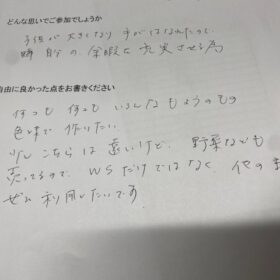 どんな思いでご参加でしょうか
子供が大きくなり手がはなれたので、
自分の余暇を充実させる為
自由に良かった点をお書きください
何っも 何っも いろんなもようのもの
色々で 作りたい。
こちらは 遠いけど、野菜なども
売ってるので、WSだけではなく、他の
ぜひ 利用したいです